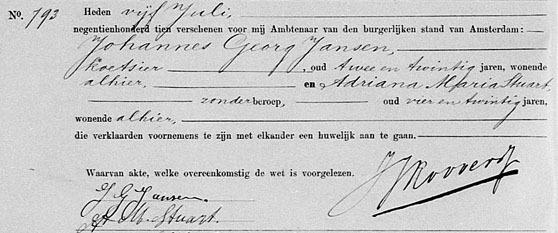 No. 793
Heden vijf Juli,
negentienhonderd tien verschenen voor mij Ambtenaar van den burgerlijken stand van Amsterdam:
Johannes Georg Jansen,
koetsier, oud twee en twintig jaren, wonende
alhier, en Adriana Maria Stuart,
zonder beroep, oud vier en twintig jaren,
wonende alhier,
die verklaarden voornemens te zijn met elkander een huwelijk aan te gaan.
Waarvan akte, welke overeenkomstig de wet is voorgelezen.
J G Jansen.
A M. Stuart.